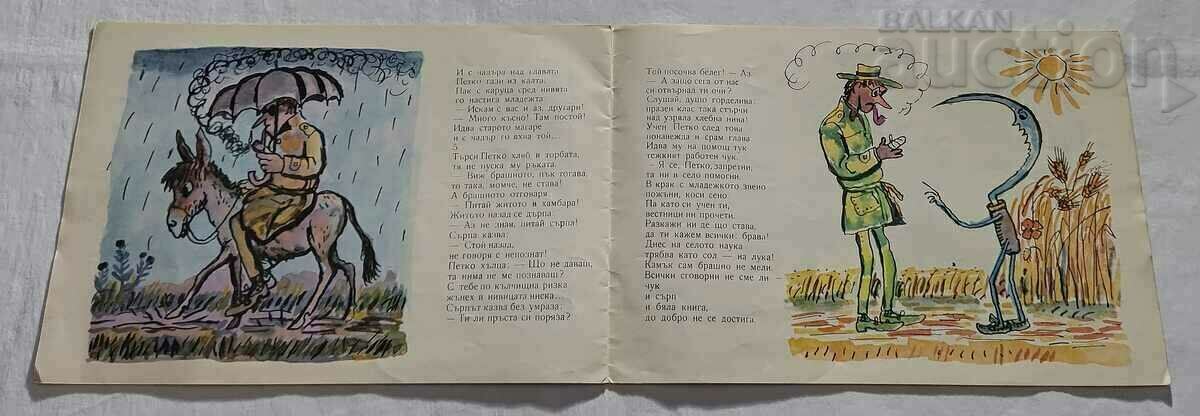 BALKAN
auction
И с чадъра над главата
Петко гази из калта.
Пак с каруца сред нивята
го настига младежта
— Искам с вас и аз, другари!
— Много късно! Там постой!
Идва старото магаре
и с чадър го яхна той...
5
Търси Петко хляб в торбата,
тя не пуска му ръката.
— Виж брашното, пък тогава,
то така, момче, не става!
А брашното отговаря
— Питай житото в хамбара!
Житото назад се дърпа:
— Аз не знам, питай сърпа!
Сърпа казва:
— Стой назад,
не говоря с непознат!
Петко хълца: — Що не даваш,
та нима не ме познаваш?
С тебе по кълчищна ризка
жънех в нивицата ниска...
Сърпът казва без умраза:
— Ти ли пръста си поряза?
Той посочва белег! — Аз.
— А защо сега от нас
си отвърнал ти очи?
Слушай, душо горделива:
празен клас така стърчи
над узряла хлебна нива!
Учен Петко след това
понавежда и срам глава
Идва му на помощ тук
тежкият работен чук.
— Я се, Петко, запретни,
та ни в село помогни.
В крак с младежкото звено
пожъни, коси сено
Па като си учен ти,
вестници ни прочети.
Разкажи ни де що става,
да ти кажем всички: брава!
Днес на селото наука
трябва като сол — на лука!
Камък сам брашно не мели.
Всички сговорни не сме ли
чук
и сърп
и бяла книга,
до добро не се достига.